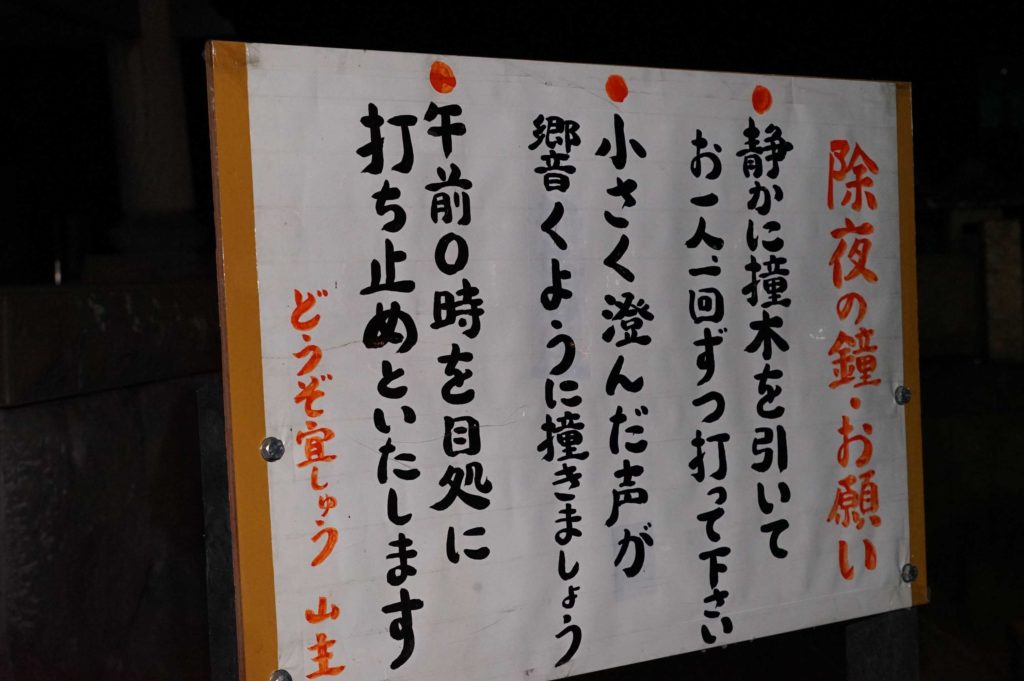 除夜の鐘・お願い
静かに撞木を引いて
お一人一回ずつ打って下さい
小さく澄んだ声が
響くように撞きましょう
午前0時を目処に
打ち止めといたします
どうぞ宜しゅう 山主